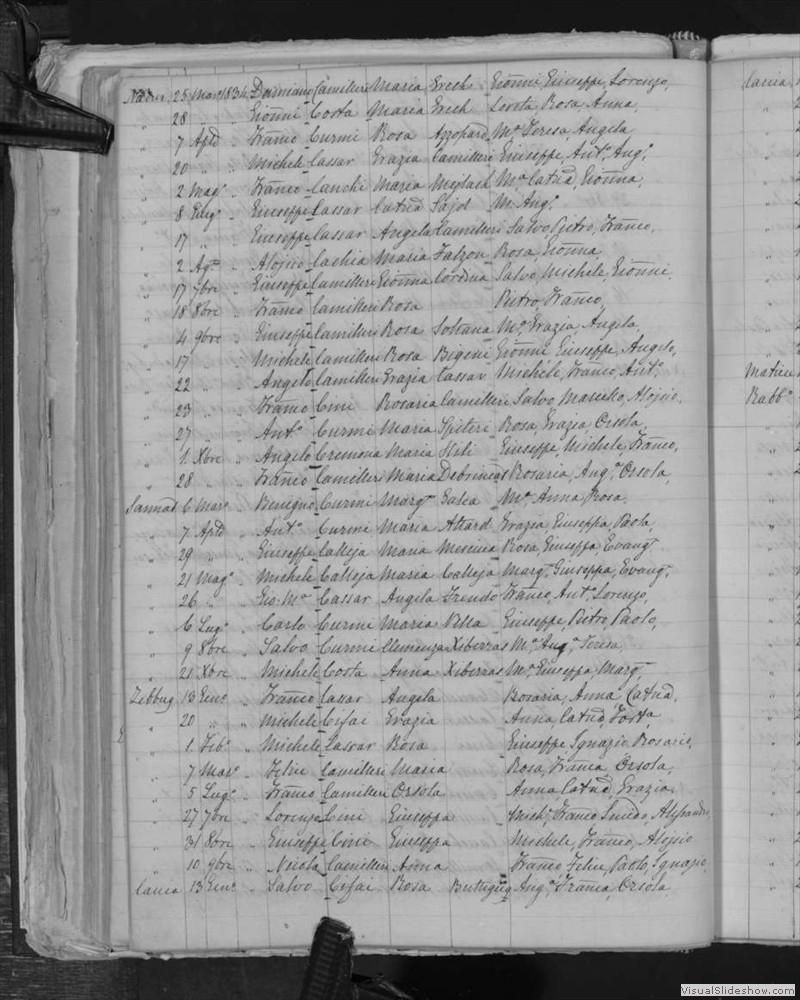 Nadur 25 Mar. 1834 Damiano Camilleri Maria Grech Gionni Giuseppe, Lorenzo,
" 28 " " Gionni Costa Maria Grech Loreta Rosa Anna,
" 7 Aple " Franco Curmi Rosa Azzopard Ma Teresa, Angela
" 20 " " Michele Cassar Grazia Camilleri Giuseppe, Anto Ango
" 2 Mago " Franco Maria Mejlach Ma Catna, Gionna,
" 8 Lugo " Giuseppe Cassar Catna Sajol M. Ango
" 17 " Giuseppe Cassar Angela Camilleri Salvo Pietro, Franco,
" 2 Ago " Aloisio Cachia Maria Falzon Rosa, Gionna,
" 17 7bre " Giuseppe Camilleri Gionna Cordina Salvo, Michele, Gionni,
" 18 8bre " Franco Camilleri Rosa Pietro, Franco,
" 4 9bre " Giuseppe Camilleri Rosa Soltana Ma Grazia, Angela,
" 17 " Michele Camilleri Rosa Bigeni Gionni Giuseppe, Angelo,
" 22 " Angelo Camilleri Grazia Cassar Michele, Franco, Anto
" 23 " Franco Cini Rosaria Camilleri Salvo Marcello, Aloisio,
" 27 " " Anto Curmi Maria Spiteri Rosa, Grazia, Orsola,
" 1 Xbre " Angelo Cremona Maria Hili Giuseppe, Michele, Franco,
" 28 " " Franco Camilleri Maria Debrincat Rosaria, Anga Orsola,
Sannat 6 Maro " Benigno Curmi Marga Galea Ma Anna, Rosa,
" 7 Aple " Anto Curmi Maria Attard Grazia, Giuseppa, Paola,
" 29 " " Giuseppe Calleja Maria Mercieca Rosa, Giuseppa, Evanga
" 21 Mago " Michele Calleja Maria Calleja Marga, Giuseppa, Evanga,
" 26 " " Gio. Ma Cassar Angela Frendo Franco, Anto Lorenzo,
" 6 Lugo " Carlo Curmi Maria Vella Giuseppe, Pietro, Paolo,
" 9 8bre " Salvo Curmi Clemenza Xiberras Ma Anga Teresa,
" 21 Xbre " Michele Costa Anna Xiberras Ma Giuseppa, Marga,
Zebbug 13 Geno " Franco Cassar Angela Rosaria, Anna, Catna,
" 20 " " Michele Cifai Grazia Anna, Catna,
" 1 Febo " Michele Cassar Rosa Giuseppe, Ignazio, Rosario,
" 7 Maro " Felice Camilleri Maria Rosa, Franca Orsola,
" 5 Lugo " Franco Camilleri Orsola Anna Catna, Grazia,
" 27 7bre " Lorenzo Cini Giuseppa Miche, Franco Guido, Alessandro,
" 31 8bre " Giuseppe Cini Giuseppa Michele, Franco, Aloisio
" 10 9bre " Nicola Camilleri Anna Franco Felice, Paolo, Ignazio,
Caccia 13 Geno " Salvo Cifai Rosa Buttigieg Anga, Franca, Orsola,
Caccia
Rabbo
VisualSlideshow.com